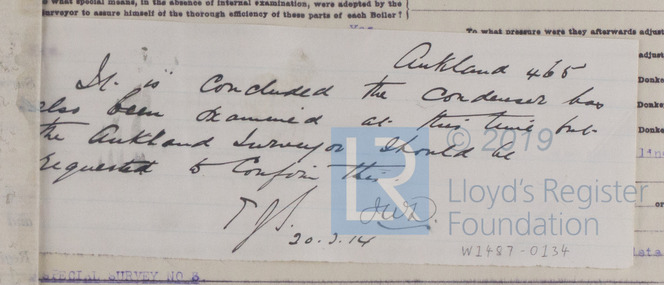 what special means, in the absence of internal examination, were adopted by the
Surveyor to assure himself of the thorough efficiency of these parts of each Boiler?
To what pressure were they afterwards adjust
Auckland 465
It is concluded the Condenser has
also been examined at this time but
the Auckland Surveyor should be
requested to confirm this.
20.3.14
adjust
Donke
Donke
Donke
© 2019
LR
Lloyd's Register
Foundation
W1487-0134
SPECIAL SURVEY NO 3